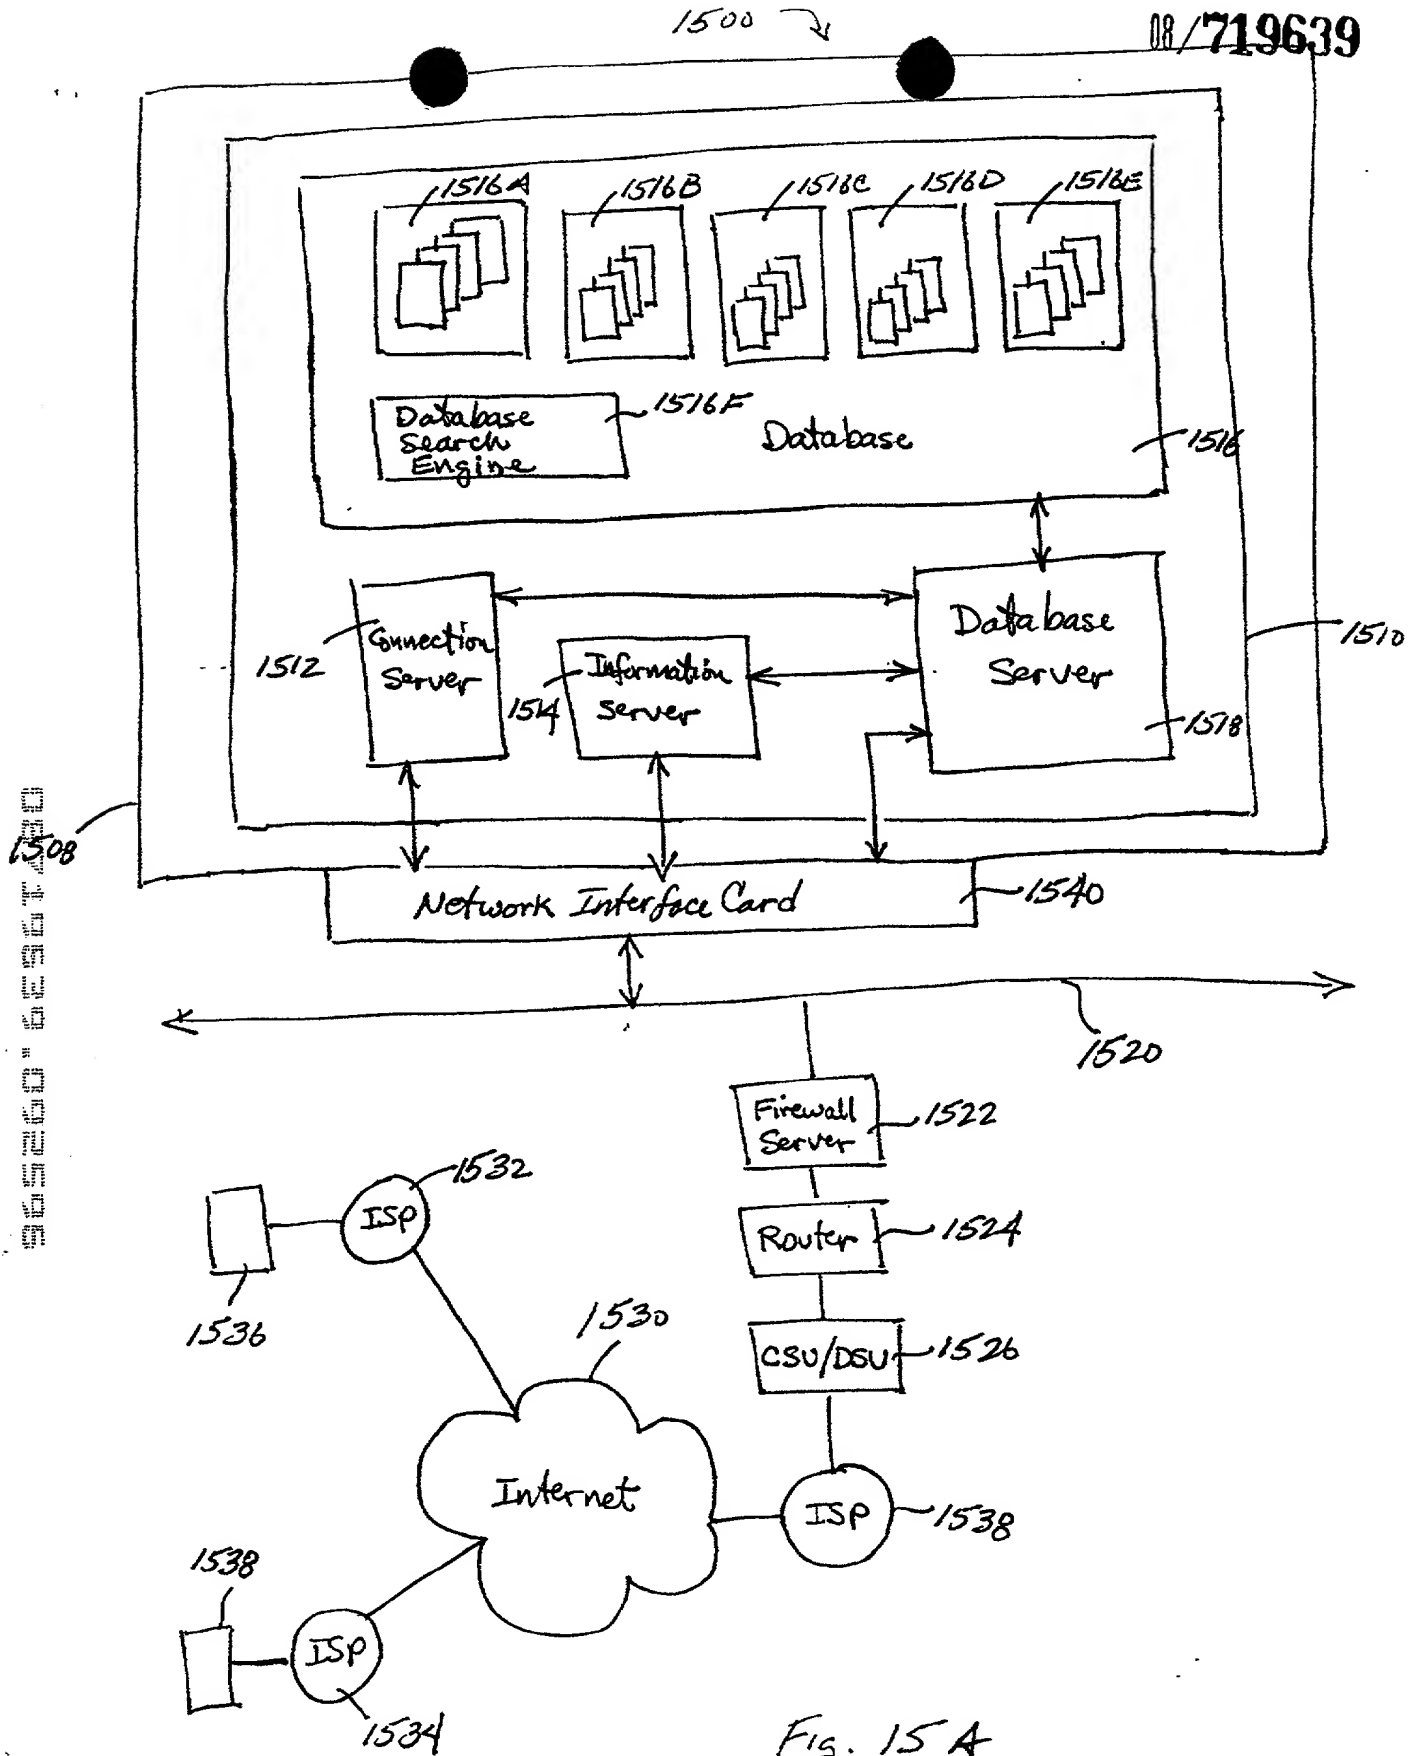 1500
08/719639
1516A
1516B
1516C
1516D
1516E
Database
Search
Engine
1516F
Database
1516
Connection
Server
1512
Information
Server
1514
Database
Server
1518
1510
1508
Network Interface Card
1540
1520
Firewall
Server
1522
ISP
1532
Router
1524
1536
1530
CSU/DSU
1526
Internet
ISP
1538
1538
ISP
1534
Fig. 15A